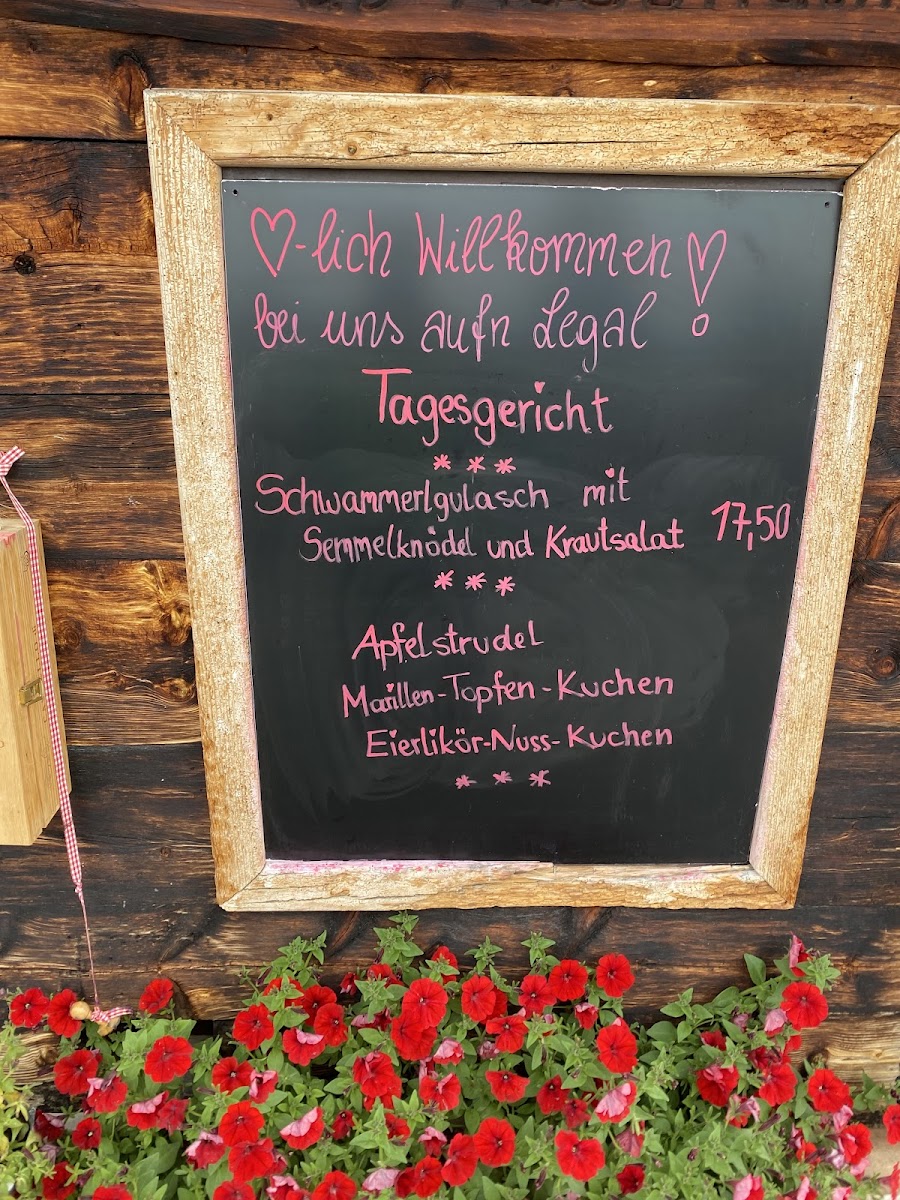 ♡-lich Willkommen
bei uns aufn Legal!
Tagesgericht
* * *
Schwammerlgulasch mit
Semmelknödel und Krautsalat 17,50
* * *
Apfelstrudel
Marillen-Topfen-Kuchen
Eierlikör-Nuss-Kuchen
* * *